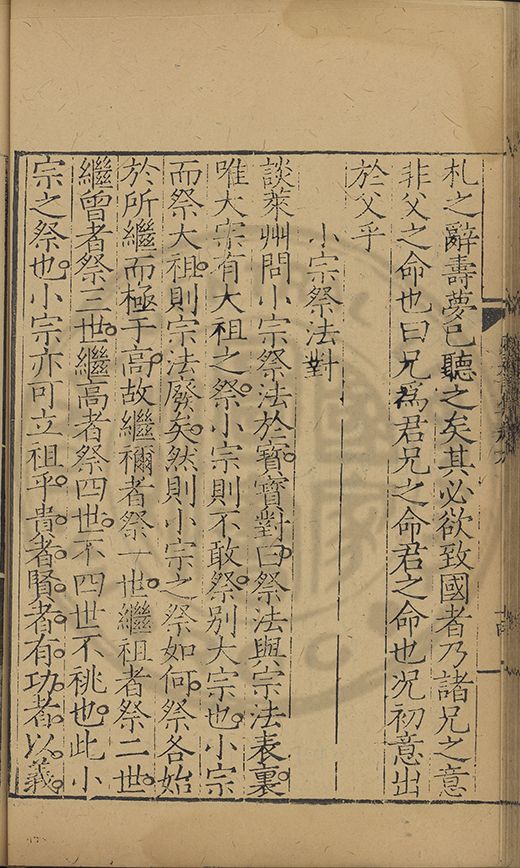 札之辭壽夢已聽之矣其必欲致國者乃諸兄之意
非父之命也曰兄爲君兄之命君之命也况初意出
於父乎
小宗祭法對
談萊州問小宗祭法於寶寶對曰祭法與宗法表裏
唯大宗有大祖之祭小宗則不敢祭別大宗也小宗
而祭大祖則宗法廢矣然則小宗之祭如何祭各始
於所繼而極于高故繼禰者祭一世繼祖者祭二世
繼曾者祭三世繼高者祭四世不四世不祧也此小
宗之祭也小宗亦可立祖乎貴者賢者有功者以義